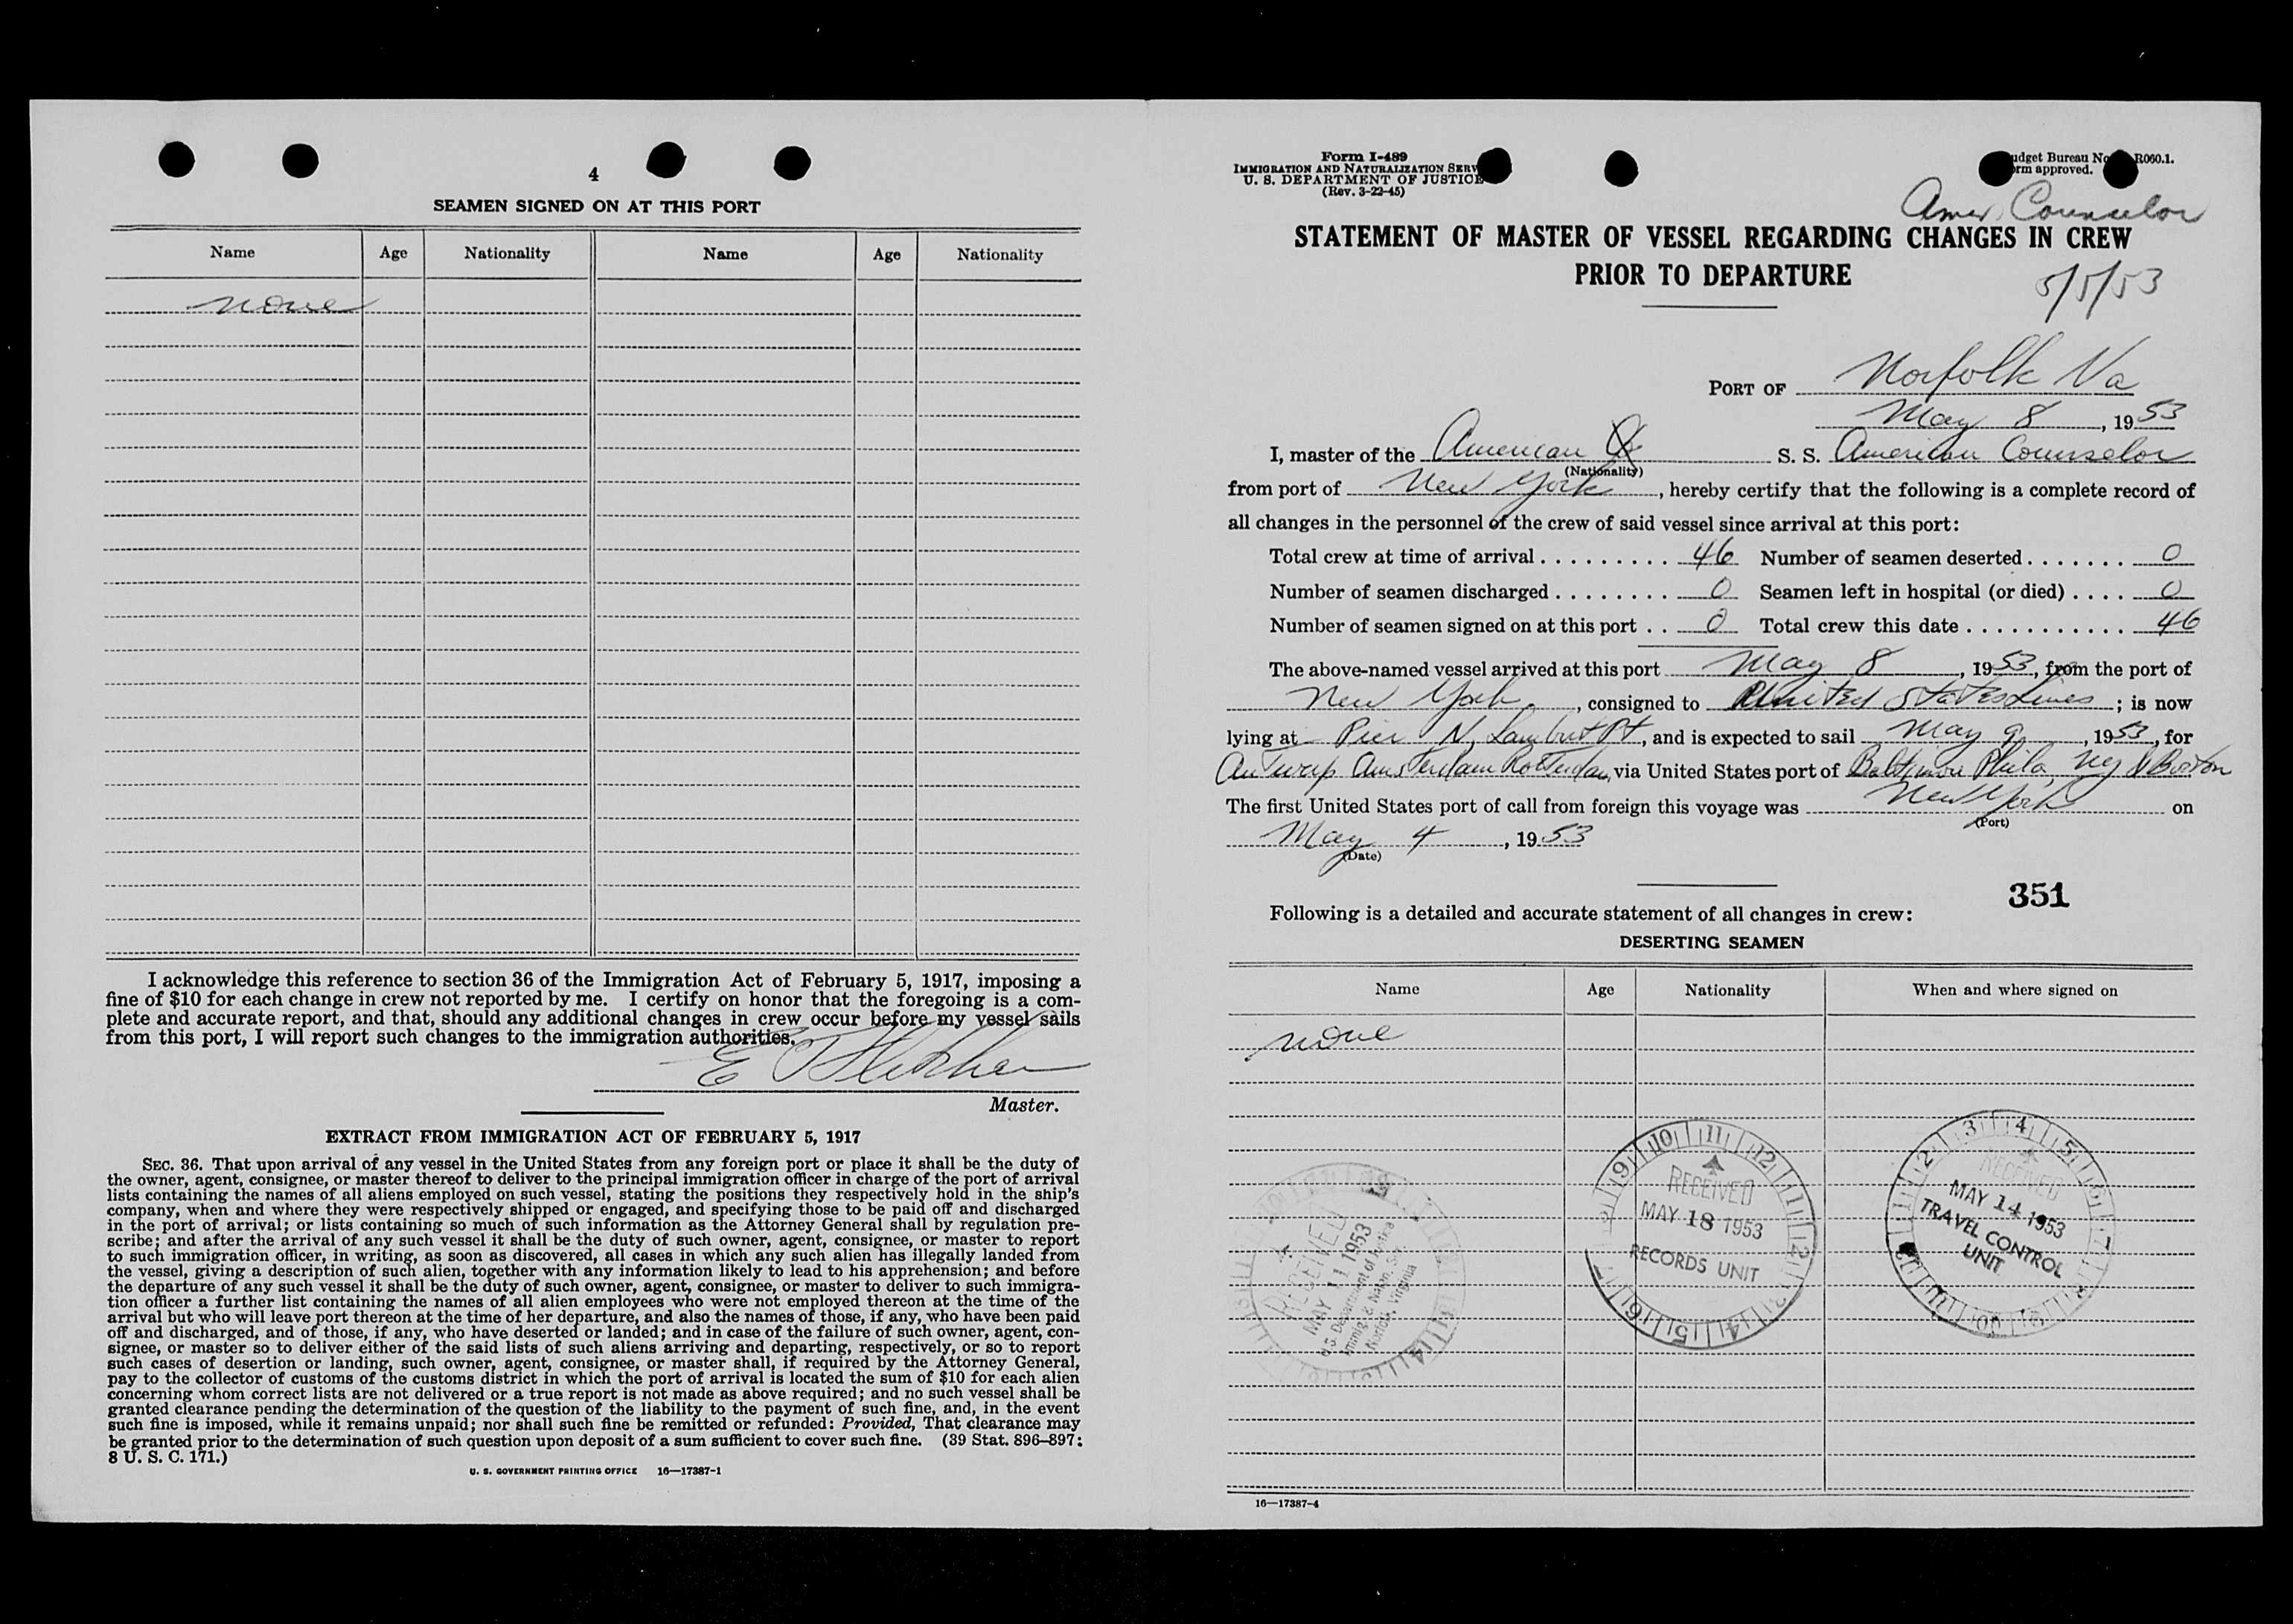 4
SEAMEN SIGNED ON AT THIS PORT
Name Age Nationality Name Age Nationality
none
I acknowledge this reference to section 36 of the Immigration Act of February 5, 1917, imposing a
fine of $10 for each change in crew not reported by me. I certify on honor that the foregoing is a com-
plete and accurate report, and that, should any additional changes in crew occur before my vessel sails
from this port, I will report such changes to the immigration authorities.
E
Master.
EXTRACT FROM IMMIGRATION ACT OF FEBRUARY 5, 1917
SEC. 36. That upon arrival of any vessel in the United States from any foreign port or place it shall be the duty of
the owner, agent, consignee, or master thereof to deliver to the principal immigration officer in charge of the port of arrival
lists containing the names of all aliens employed on such vessel, stating the positions they respectively hold in the ship's
company, when and where they were respectively shipped or engaged, and specifying those to be paid off and discharged
in the port of arrival; or lists containing so much of such information as the Attorney General shall by regulation pre-
scribe; and after the arrival of any such vessel it shall be the duty of such owner, agent, consignee, or master to report
to such immigration officer, in writing, as soon as discovered, all cases in which any such alien has illegally landed from
the vessel, giving a description of such alien, together with any information likely to lead to his apprehension; and before
the departure of any such vessel it shall be the duty of such owner, agent, consignee, or master to deliver to such immigra-
tion officer a further list containing the names of all alien employees who were not employed thereon at the time of the
arrival but who will leave port thereon at the time of her departure, and also the names of those, if any, who have been paid
off and discharged, and of those, if any, who have deserted or landed; and in case of the failure of such owner, agent, con-
signee, or master so to deliver either of the said lists of such aliens arriving and departing, respectively, or so to report
such cases of desertion or landing, such owner, agent, consignee, or master shall, if required by the Attorney General,
pay to the collector of customs of the customs district in which the port of arrival is located the sum of $10 for each alien
concerning whom correct lists are not delivered or a true report is not made as above required; and no such vessel shall be
granted clearance pending the determination of the question of the liability to the payment of such fine, and, in the event
such fine is imposed, while it remains unpaid; nor shall such fine be remitted or refunded: Provided, That clearance may
be granted prior to the determination of such question upon deposit of a sum sufficient to cover such fine. (39 Stat. 896–897;
8 U. S. C. 171.)
U. S. GOVERNMENT PRINTING OFFICE 16—17387-1
Form I-489
IMMIGRATION AND NATURALIZATION SERV
U. S. DEPARTMENT OF JUSTICE
(Rev. 3-22-45)
udget Bureau No R060.1.
rm approved.
Amer Counselor
STATEMENT OF MASTER OF VESSEL REGARDING CHANGES IN CREW
PRIOR TO DEPARTURE
5/5/53
PORT OF Norfolk Va
May 8, 1953
I, master of the American S. S. American Counselor
(Nationality)
from port of New York, hereby certify that the following is a complete record of
all changes in the personnel of the crew of said vessel since arrival at this port:
Total crew at time of arrival 46 Number of seamen deserted 0
Number of seamen discharged 0 Seamen left in hospital (or died) 0
Number of seamen signed on at this port 0 Total crew this date 46
The above-named vessel arrived at this port May 8, 1953, from the port of
New York, consigned to United States Lines; is now
lying at Pier N, Lambert Pt, and is expected to sail May 9, 1953, for
Antwerp Amsterdam Rotterdam, via United States port of Baltimore Phila, NY & Boston
The first United States port of call from foreign this voyage was New York on
(Port)
May 4, 1953
(Date)
351
Following is a detailed and accurate statement of all changes in crew:
DESERTING SEAMEN
Name Age Nationality When and where signed on
none
RECEIVED
MAY 11 1953
U.S. Department of Justice
Immig. & Natn. Ser.
Norfolk, Virginia
RECEIVED
MAY 18 1953
RECORDS UNIT
RECEIVED
MAY 14 1953
TRAVEL CONTROL
UNIT
16—17387-4